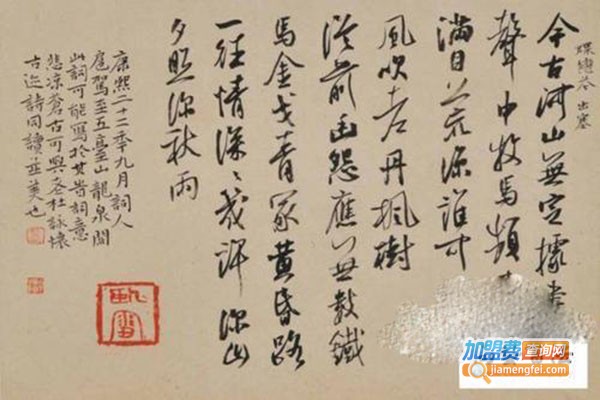 蝶戀花 出塞
今古河山無定據畫
聲中牧馬頻
滿目荒涼誰可
風吹老丹楓樹
從前幽怨應無數鐵
馬金戈青冢黃昏路
一往情深深幾許深山
夕照深秋雨
康熙二十二年九月詞人
扈駕至五臺山龍泉關
此詞可能寫於其時詞意
悲涼蒼古可與老杜詠懷
古迹詩同讀並美也
加盟费查询网
jiamengfei.com